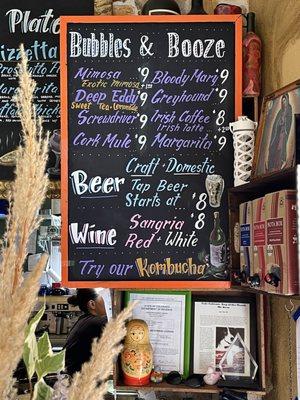 Plates
Pizzetta
Prosciutto
Bubbles & Booze
Mimosa $9
Exotic Mimosa +1
Deep Eddy $9
Sweet Tea - Lemonade
Screwdriver $9
Cork Mule $9
Bloody Mary $9
Greyhound $9
Irish Coffee $8
Irish Latte
Margarita $9
Beer
Craft + Domestic
Tap Beer
Starts at $8
Wine
Sangria
Red + White $8
Try our Kombucha
BOTA BOX
BOTA BOX